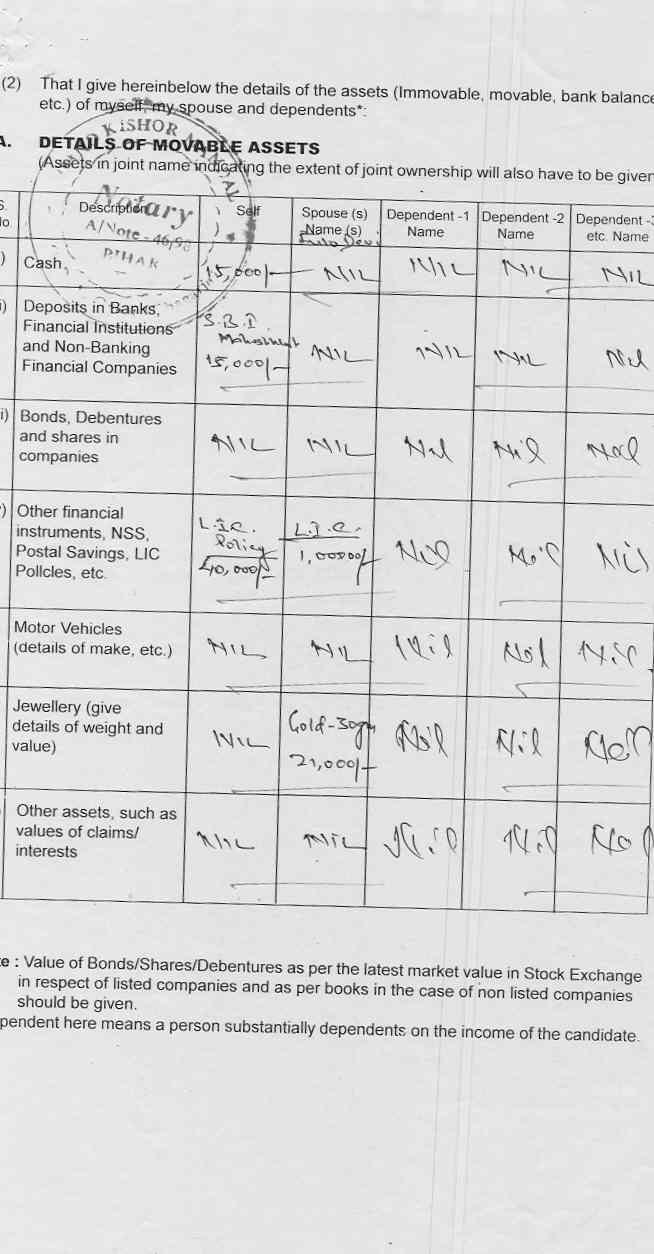 (2) That I give hereinbelow the details of the assets (Immovable, movable, bank balance
etc.) of myself, my spouse and dependents*:
A. DETAILS OF MOVABLE ASSETS
(Assets in joint name indicating the extent of joint ownership will also have to be given
KISHOR
Notary
A/Note - 46/98
BIHAR
S. No Description Self Spouse (s) Name (s) Dependent -1 Name Dependent -2 Name Dependent -3 etc. Name
Devi
) Cash, 15,000/- NIL NIL NIL NIL
i) Deposits in Banks,
Financial Institutions
and Non-Banking
Financial Companies
S.B.I.
15,000/- NIL NIL NIL Nil
i) Bonds, Debentures
and shares in
companies
NIL NIL Nil Nil Nil
) Other financial
instruments, NSS,
Postal Savings, LIC
Policies, etc.
L.I.C.
Policy
40,000/-
L.I.C.
1,00000/-
Nil Nil Nil
Motor Vehicles
(details of make, etc.)
NIL NIL Nil Nil Nil
Jewellery (give
details of weight and
value)
NIL
Gold-30gm
21,000/-
Nil Nil Nil
Other assets, such as
values of claims/
interests
NIL NIL Nil Nil Nil
e : Value of Bonds/Shares/Debentures as per the latest market value in Stock Exchange
in respect of listed companies and as per books in the case of non listed companies
should be given.
pendent here means a person substantially dependents on the income of the candidate.